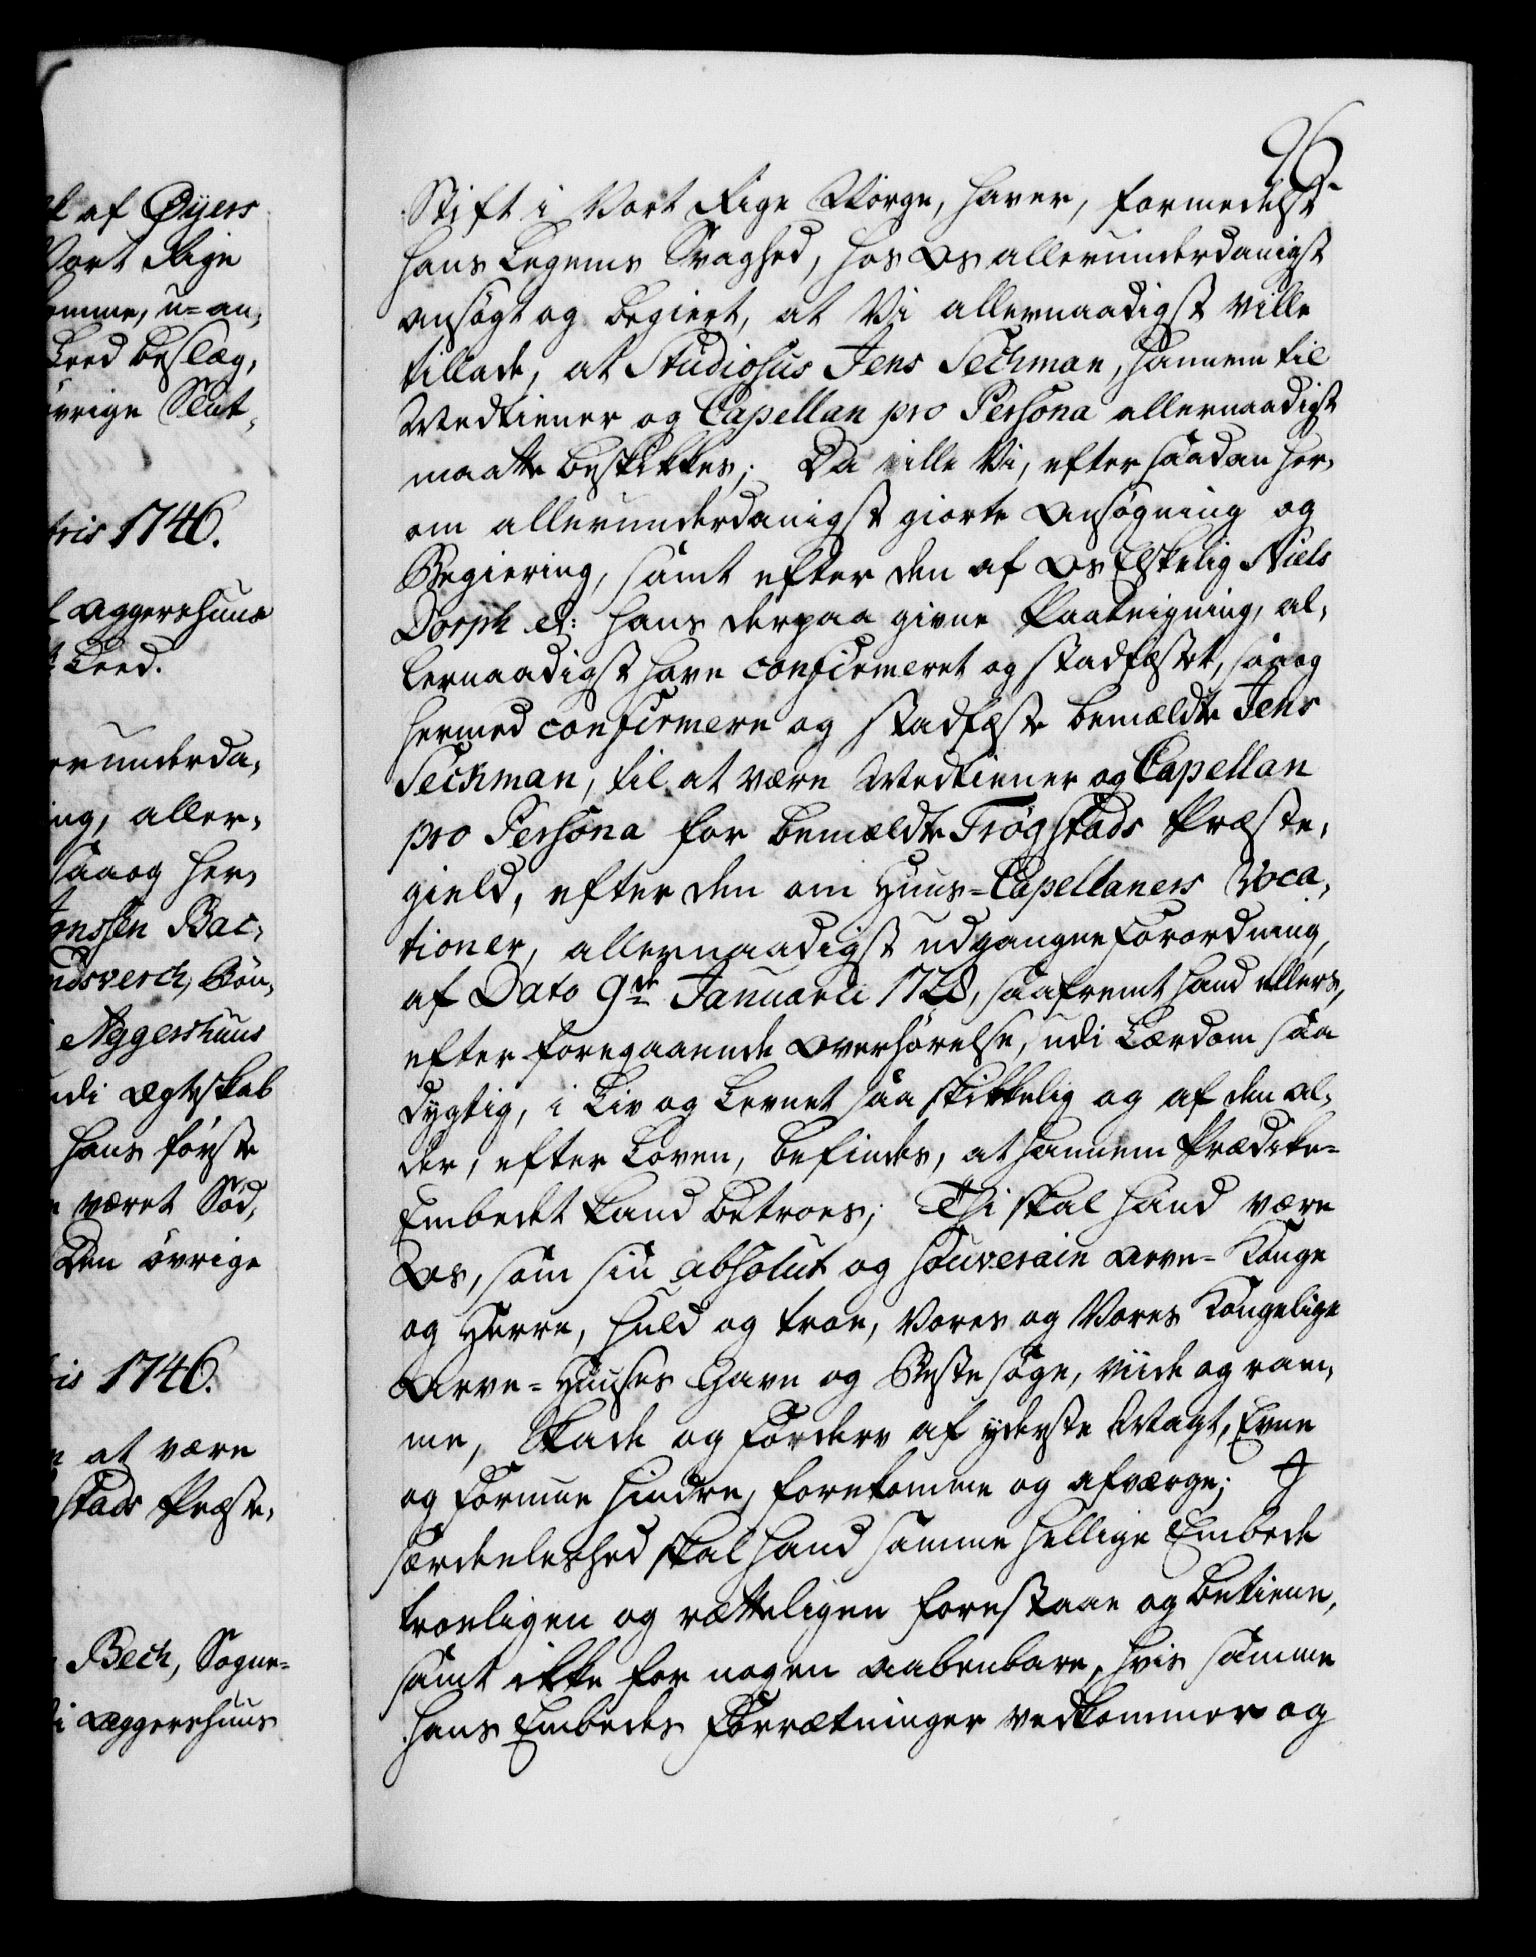 k af Øyers
Vort Rige
komme, u=an,
Leed beslæg,
øvrige Slut,
bris 1746.
Aggershuus
Leed.
erunderda,
ing, aller,
saa og her,
Jonssen Bac,
ndsverch, Søn,
Aggershuus
udi Ægteskab
hans første
været Sød,
Den øvrige
bris 1746.
at være
stads Præste,
Bech, Sogne=
i Aggershuus
96
Stift i Vort Rige Norge, haver, formedelst
hans Legems Svaghed, hos Os allerunderdanigst
ansøgt og begiert, at Vi allernaadigst ville
tillade, at Studiosus Jens Sechman, hannem til
Medtiener og Capellan pro Persona allernaadigst
maatte beskikkes; Da ville Vi, efter saadan her,
om allerunderdanigst giorte Ansøgning og
Begiering, samt efter den af Os Elskelig Niels
Dorph &: hans derpaa givne Paateigning, al,
lernaadigst have confirmeret og stadfæstet, saa og
hermed confirmere og stadfæste bemældte Jens
Sechman, til at være Medtiener og Capellan
pro Persona for bemældte Trøgstads Præste,
gield, efter den om Huus=Capellaners Voca,
tioner, allernaadigst udgangne Forordning,
af Dato 9de Januarii 1728, saafremt hand ellers,
efter foregaaende Overhørelse, udi Lærdom saa
dygtig, i Liv og Levnet saa skikkelig og af den Al,
der, efter Loven, befindes, at hannem Prædike=
Embedet kand betroes; Thi skal hand være
Os, som sin absolut og souverain Arve=Konge
og Herre, huld og troe, Vores og Vores Kongelige
Arve=Huuses Gavn og Beste søge, viide og ram,
me, Skade og Forderv af yderste Magt, Evne
og Formue hindre, forekomme og afværge; I
særdeleshed skal hand samme hellige Embede
troeligen og rætteligen forestaae og betiene,
samt ikke for nogen aabenbare, hvis samme
hans Embedes Forrætninger vedkommer og